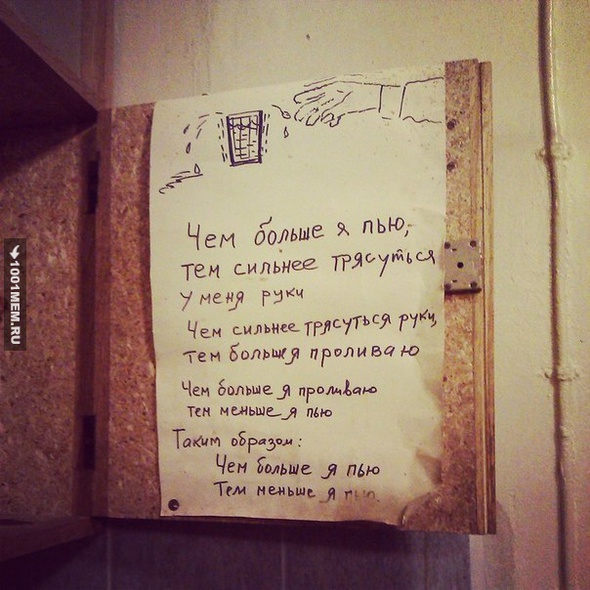 Чем больше я пью,
тем сильнее трясуться
у меня руки
Чем сильнее трясуться руки,
тем больше я проливаю
Чем больше я проливаю
тем меньше я пью
Таким образом:
Чем больше я пью
Тем меньше я пью.
1001MEM.RU